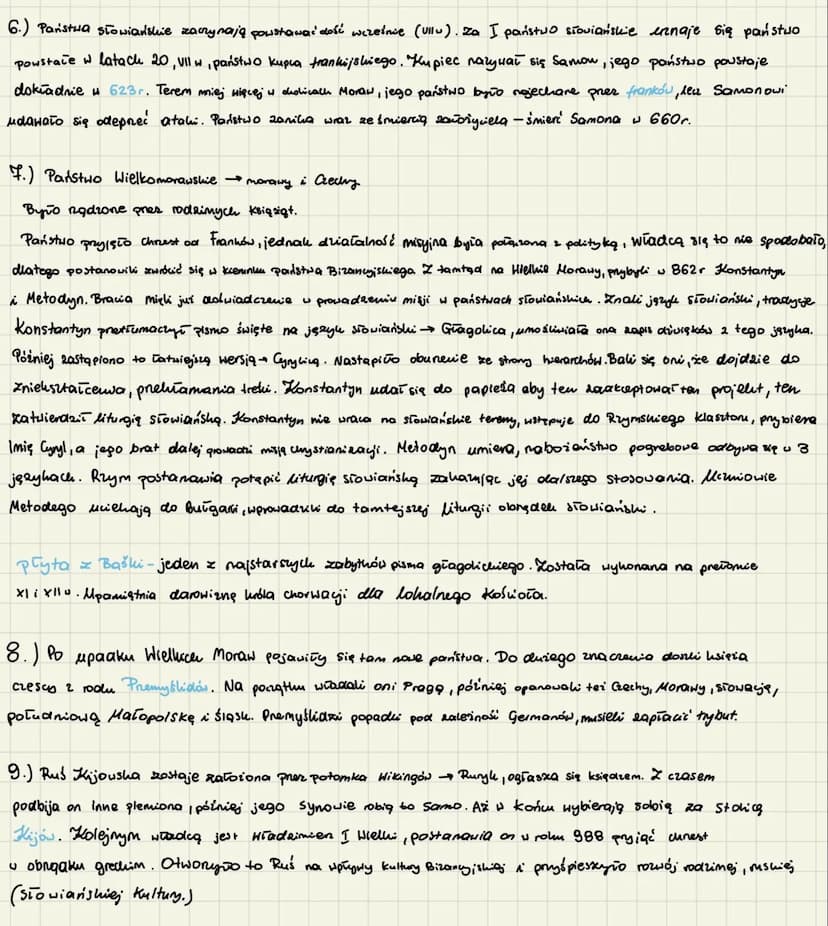 6.) Państwa słowiańskie zaczynają powstawać dość wcześnie (VII w). Za I państwo słowiańskie uznaje się państwo
powstałe w latach 20, VII w, państwo kupca frankijskiego. Kupiec nazywał się Samon, jego państwo powstaje
dokładnie w 623r. Teren mniej więcej w okolicach Moraw, jego państwo było najechane przez franków, lecz Samonowi
udawało się odeprzeć ataki. Państwo zanika wraz ze śmiercią założyciela - śmierć Samona w 660r.
7.) Państwo Wielkomorawskie → morawy i Czechy.
Było rządzone przez rodzimych książąt.
Państwo przyjęło chrzest od Franków, jednak działalność misyjna była połączona z polityką, władcą się to nie spodobało,
dlatego postanowili zwrócić się w kierunku państwa Bizancyjskiego. Z tamtąd na Wielkie Morawy, przybyli w 862r Konstantyn
i Metodyn. Bracia mieli już doświadczenia w prowadzeniu misji w państwach słowiańskich. Znali język słowiański, tradycje
Konstantyn przetłumaczył pismo święte na język słowiański → Głagolica, umożliwiała ona zapis dźwięków z tego języka.
Później zastąpiono to łatwiejszą wersją → Cyrylicą. Nastąpiło oburzenie ze strony hierarchów. Bali się oni, że dojdzie do
zniekształcenia, przekłamania treści. Konstantyn udał się do papieża aby ten zaakceptował ten projekt, ten
zatwierdził liturgię słowiańską. Konstantyn nie wraca na słowiańskie tereny, wstępuje do Rzymskiego klasztoru, przybiera
imię Cyryl, a jego brat dalej prowadzi misję chrystianizacji. Metodyn umiera, nabożaństwo pogrzebowe odbywa się w 3
językach. Rzym postanawia potępić liturgię słowiańską zakazując jej dalszego stosowania. Uczniowie
Metodego uciekają do Bułgarii, wprowadzili do tamtejszej liturgii obrządek słowiański.
Płyta z Baški - jeden z najstarszych zabytków pisma głagolickiego. Została wykonana na przełomie
XI i XII w. Upamiętnia darowiznę króla chorwacji dla lokalnego kościoła.
8.) Po upadku Wielkich Moraw pojawiły się tam nowe państwa. Do dużego znaczenia doszli księcia
czescy z rodu Przemyślidów. Na początku władali oni Pragą, później opanowali też Czechy, Morawy, słowację,
południową Małopolskę i Śląsk. Przemyślidzi popadli pod zależność Germanów, musieli zapłacić trybut.
9.) Ruś Kijowska zostaje założona przez potomka Wikingów → Ruryk, ogłasza się księdzem. Z czasem
podbija on inne plemiona, później jego synowie robią to samo. Aż w końcu wybierają sobie za stolicę
Kijów. Kolejnym władcą jest Władzimierz I Wielki, postanawia on w roku 988 przyjąć chrzest
w obrządku greckim. Otworzyło to Ruś na wpływy kultury Bizancyjskiej i przyśpieszyło rozwój rodzimej, ruskiej
(słowiańskiej kultury.)